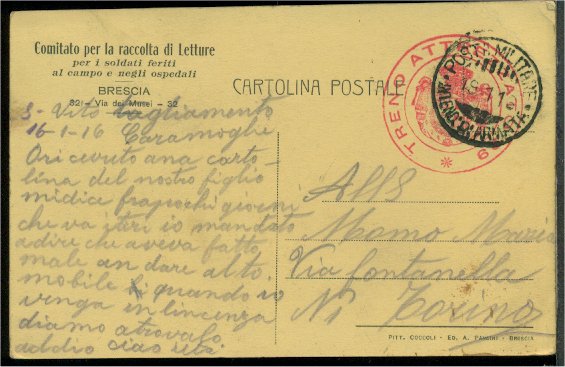 Comitato per la raccolta di Letture
per i soldati feriti
al campo e negli ospedali
BRESCIA
32 - Via dei Musei - 32
CARTOLINA POSTALE
TRENO ATTR
POSTA MILITARE
INTEND. D'ARMATA
S. Vito Tagliamento
16-1-16 Cara moglie
O ricevuto una carto-
lina del nostro figlio
mi dice fra pochi giorni
che va
a dire che aveva fatto
male andare al to
mobile quando io
venga in lincenza
diamo a trovalo
addio ciao
Alla
Momo
Via fontanella
N 1 Torino
PITT. COCCOLI - ED. A. - BRESCIA